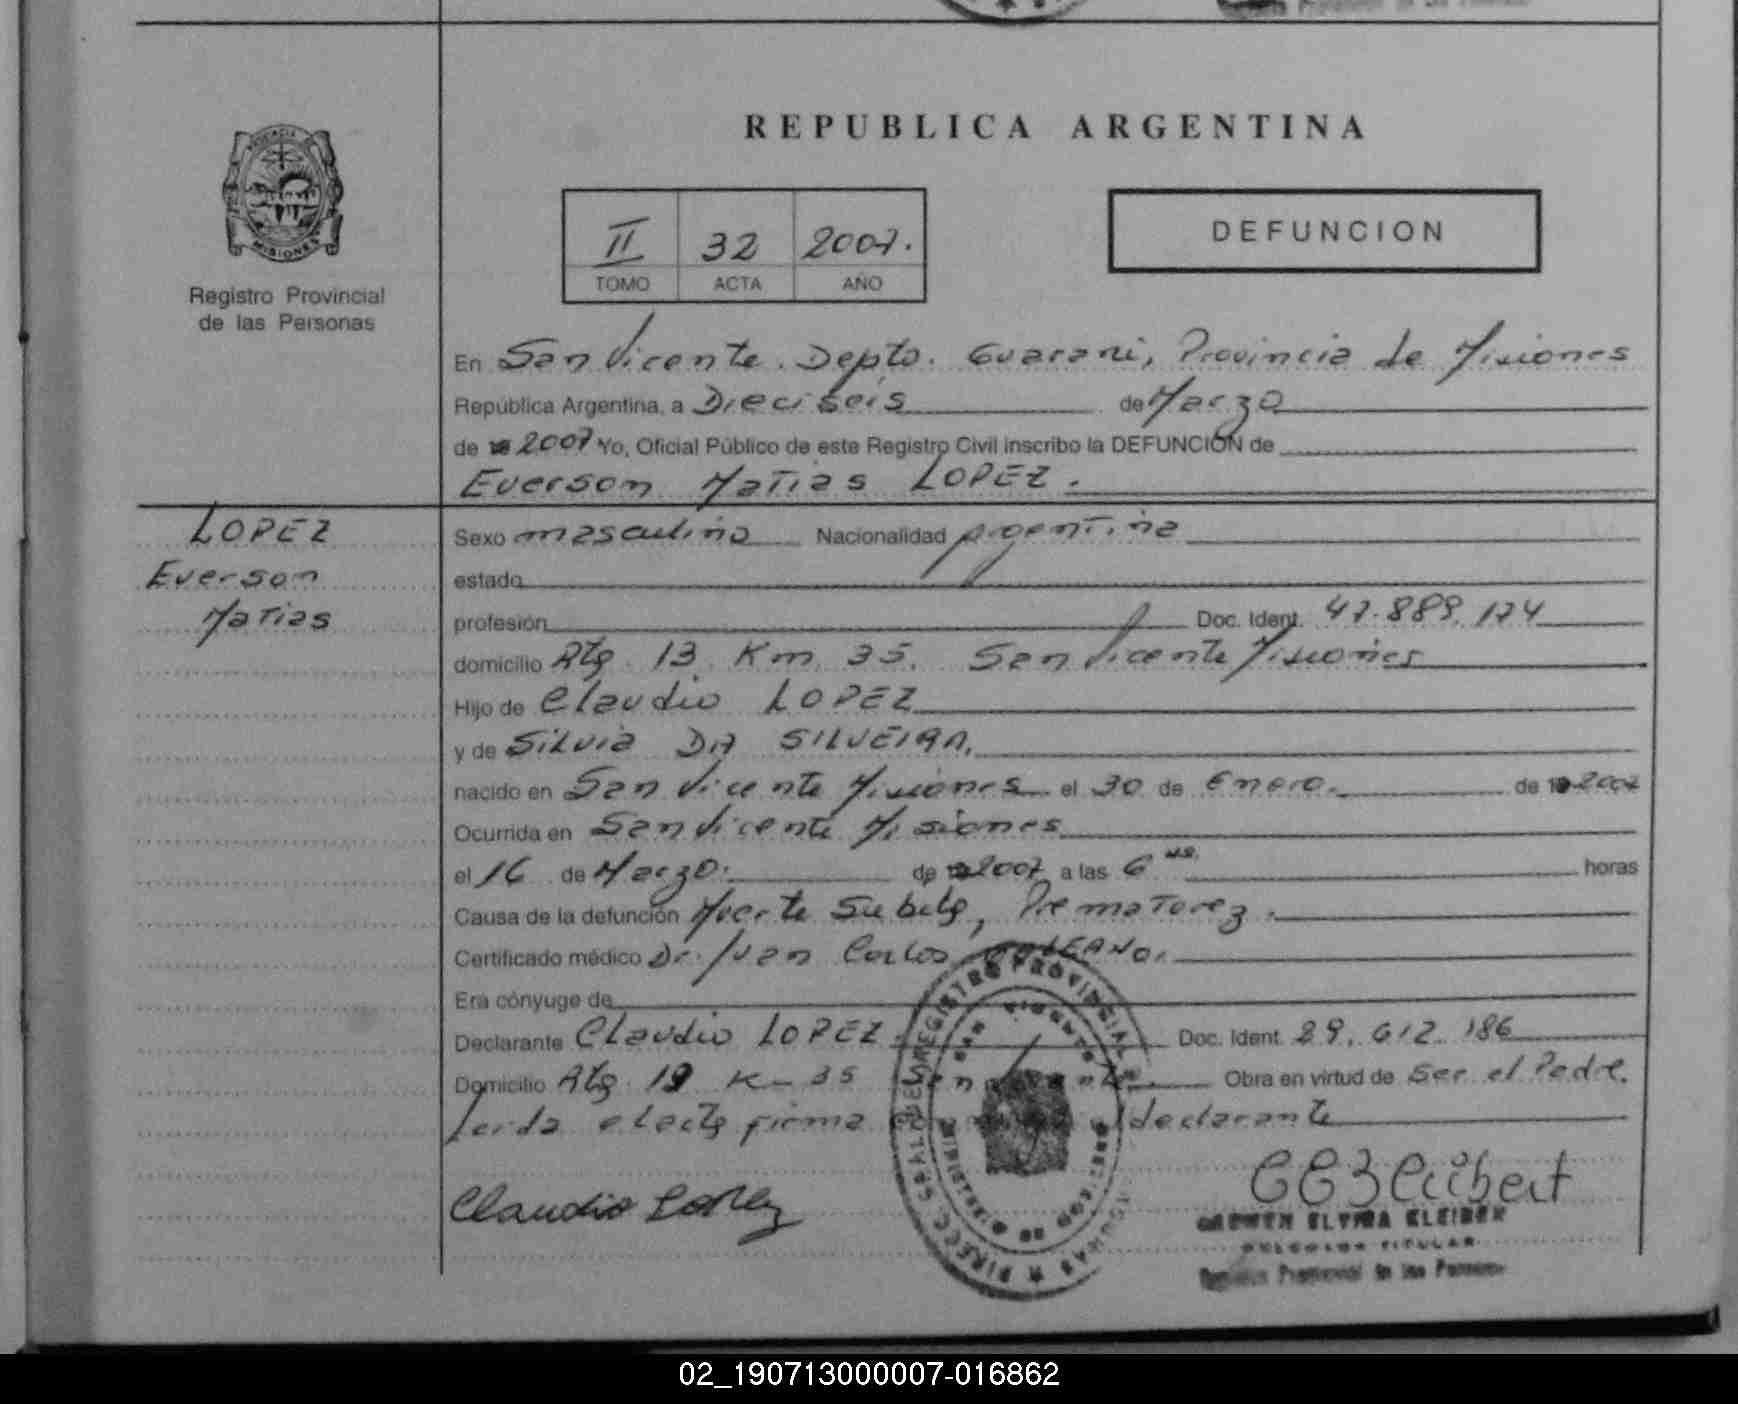 REPUBLICA ARGENTINA
PROVINCIA
MISIONES
Registro Provincial
de las Personas
II 32 2007.
TOMO ACTA AÑO
DEFUNCION
En San Vicente. Depto. Guarani, Provincia de Misiones
República Argentina, a Dieciseis de Marzo
de 2007 Yo, Oficial Público de este Registro Civil inscribo la DEFUNCION de
Everson Matias LOPEZ.
LOPEZ
Everson
Matias
Sexo masculino Nacionalidad Argentina
estado
profesión Doc. Ident. 47.889.174
domicilio Rta. 13 Km 35. San Vicente Misiones
Hijo de Claudio LOPEZ
y de Silvia DA SILVEIRA.
nacido en San Vicente Misiones el 30 de Enero. de 2007
Ocurrida en San Vicente Misiones
el 16 de Marzo. de 2007 a las 6 horas
Causa de la defunción Muerte Subita, Prematurez.
Certificado médico Dr. Juan Carlos
Era cónyuge de
Declarante Claudio LOPEZ. Doc. Ident. 29.612.186
Domicilio Rta. 13 K- 35 Obra en virtud de Ser el Padre.
Leida el acta firma declarante
REGISTRO PROVINCIAL
Claudio Lopez
CARMEN ELVIRA KLEIBER
TITULAR
Registro Provincial de las Personas
02_190713000007-016862